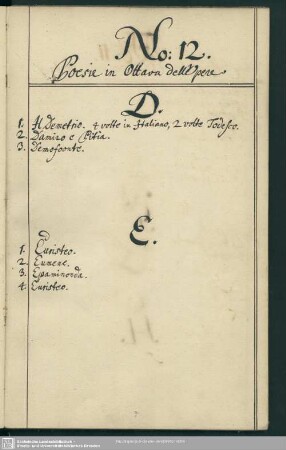 No: 12.
Poesie in Ottava dell'Opere
D.
1. Il Demetrio. 4 volte in Italiano, 2 volte Todesco.
2. Damino e Pitia.
3. Demofoonte.
E.
1. Euristeo.
2. Eumene.
3. Epaminonda.
4. Euristeo.